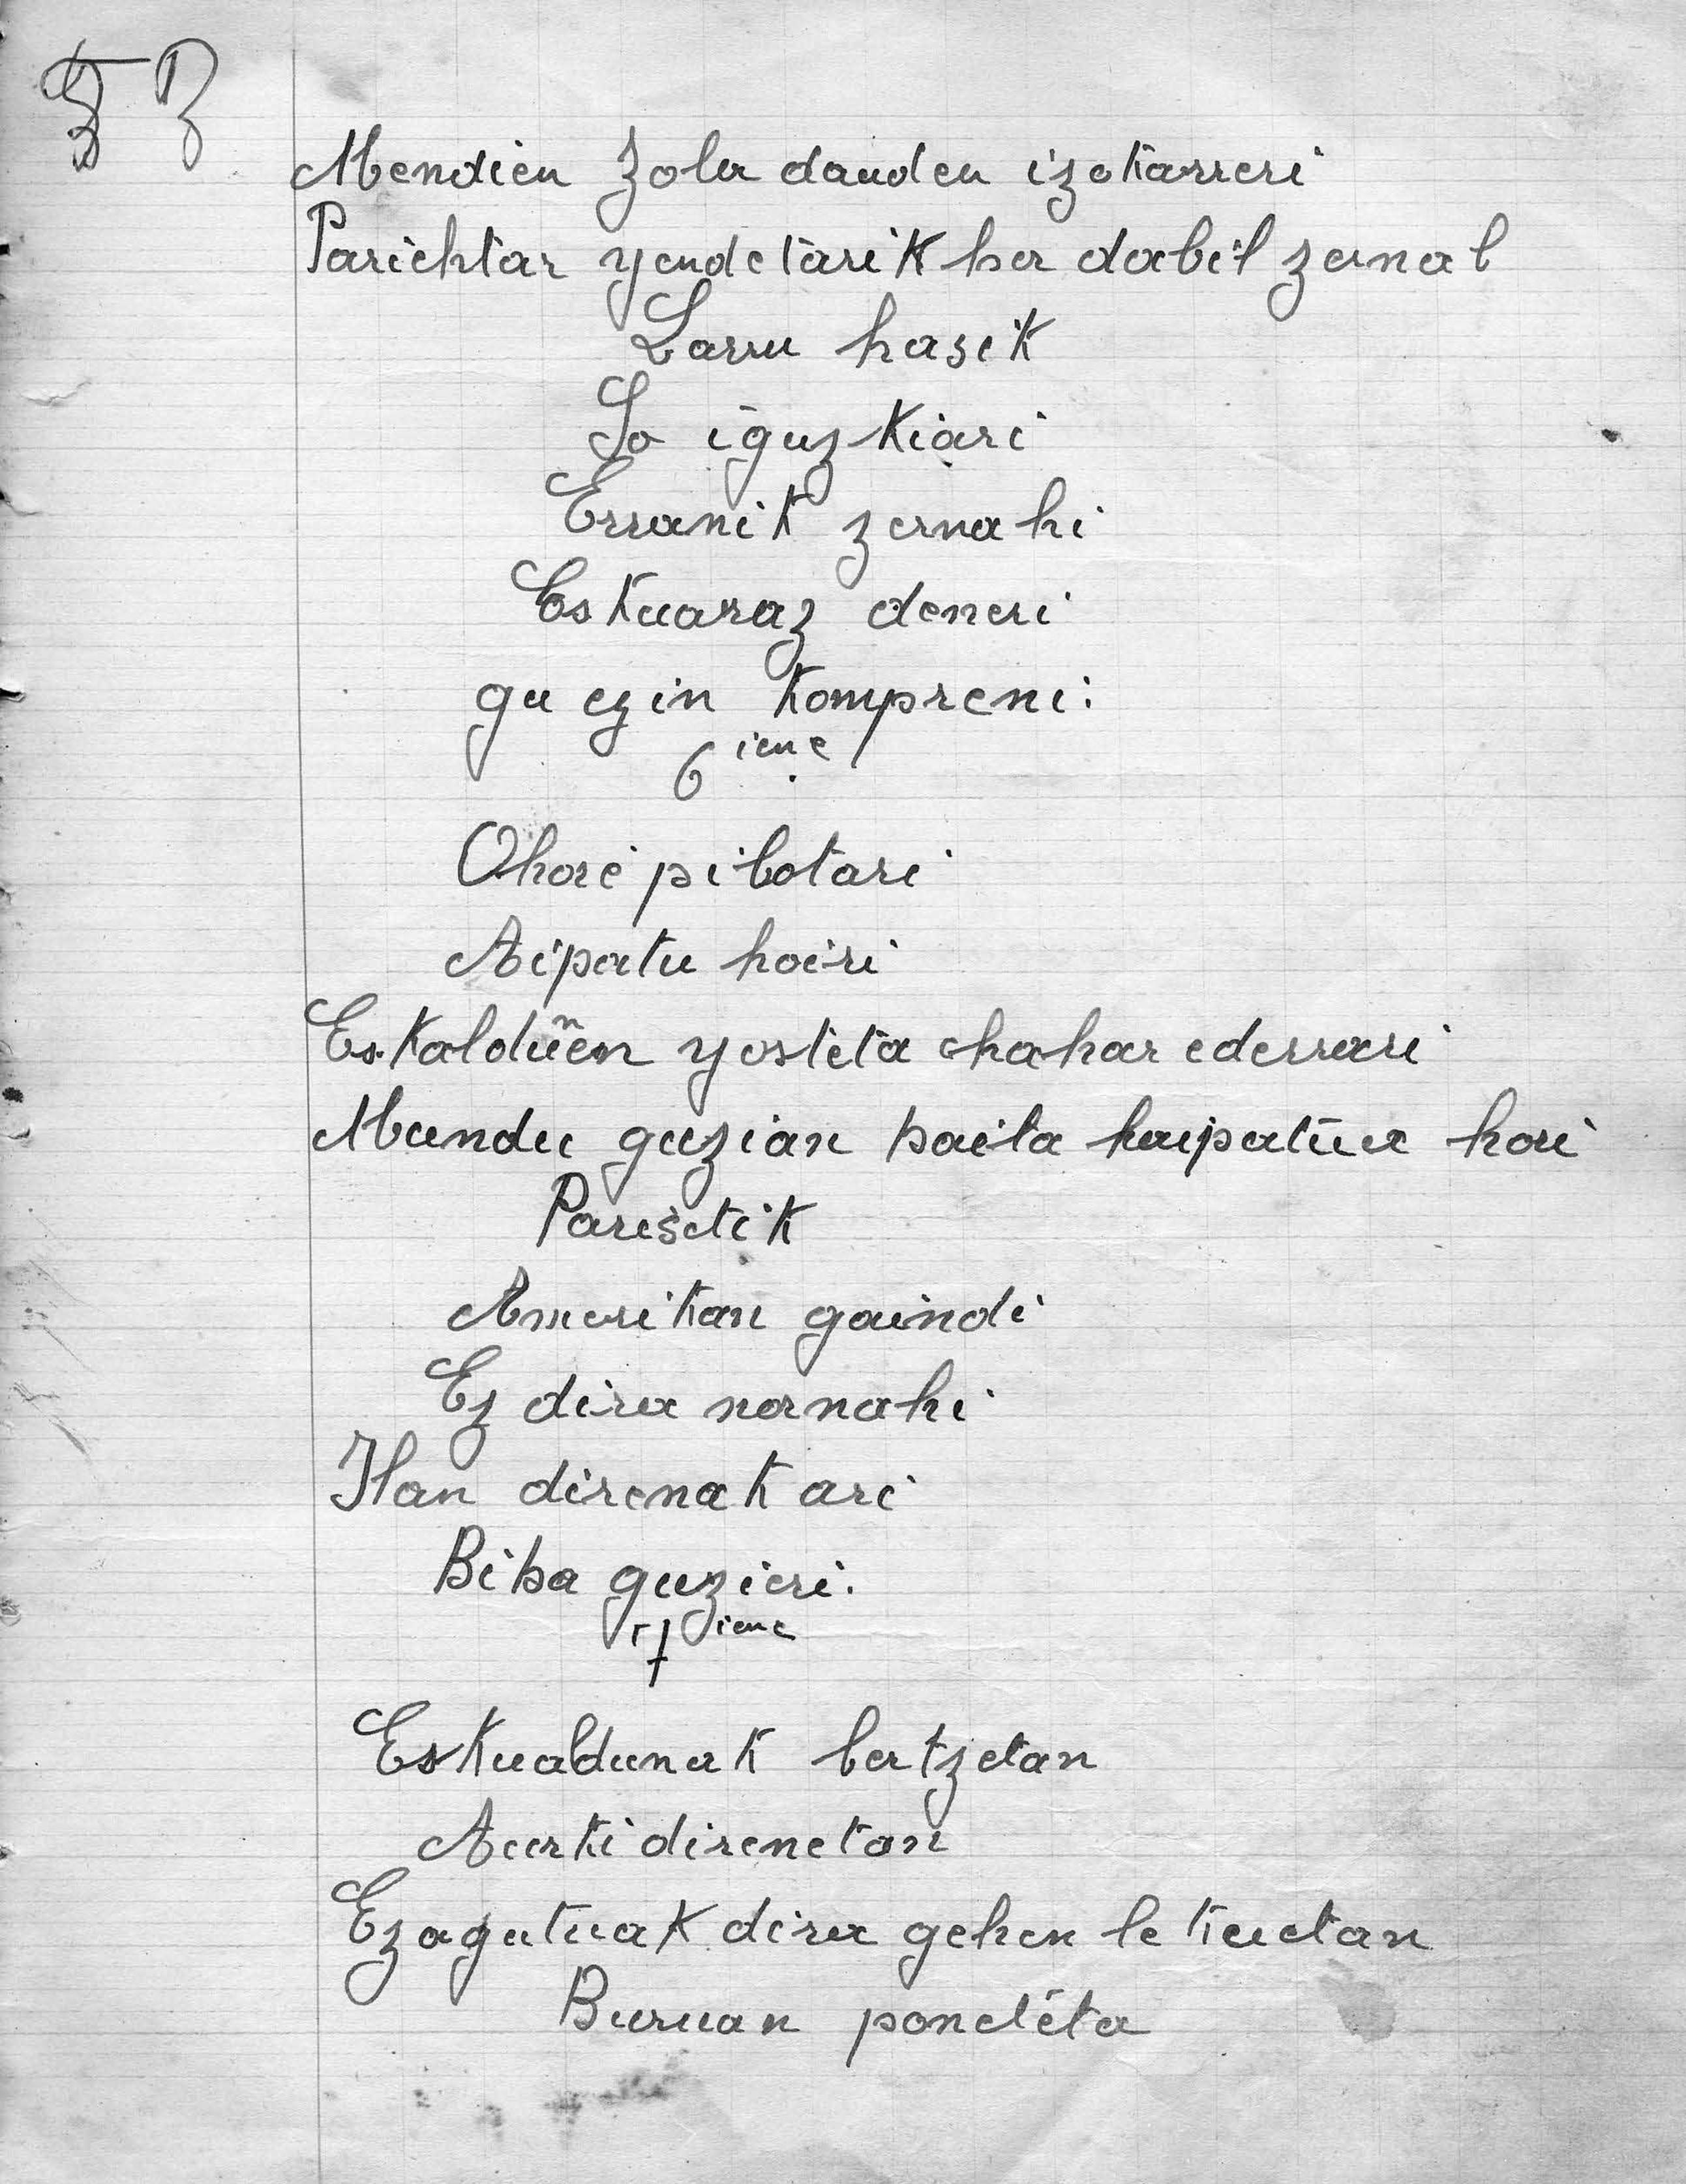 Mendien zola dauden izokarreri
Parichtar yendetarik ba dabil zernal
Larru hasik
So iguzkiari
Erranik zernahi
Eskuaraz deneri
gu ezin kompreni:
6 ieme
Ohore pilotari
Aipatu hoiri
Eskaldunen yosteta chahar ederrari
Mundu guzian baita haipatua hori
Parisetik
Amerikan gaindi
Ez dira nornahi
Han direnak ari
Biba guzieri.
7 ieme
Eskualdunak bertzetan
Aurki direnetan
Ezagutuak dira gehen lekuetan
Buruan ponetéta